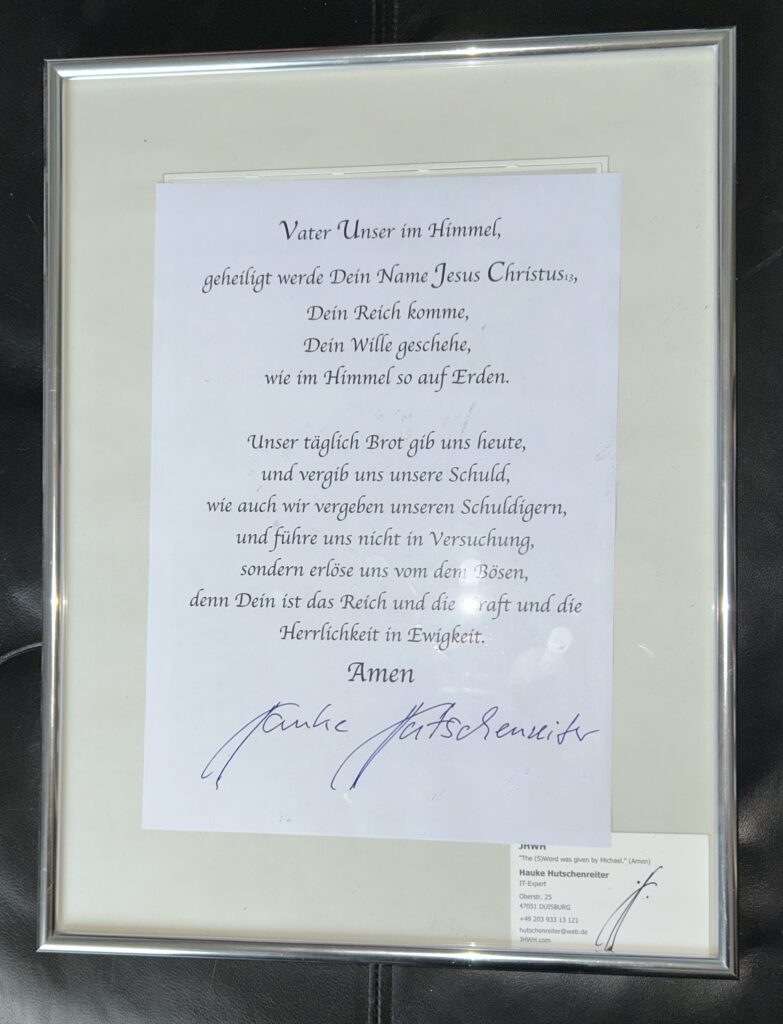 Vater Unser im Himmel,
geheiligt werde Dein Name Jesus Christus13,
Dein Reich komme,
Dein Wille geschehe,
wie im Himmel so auf Erden.
Unser täglich Brot gib uns heute,
und vergib uns unsere Schuld,
wie auch wir vergeben unseren Schuldigern,
und führe uns nicht in Versuchung,
sondern erlöse uns vom dem Bösen,
denn Dein ist das Reich und die Kraft und die
Herrlichkeit in Ewigkeit.
Amen
Hauke Hutschenreiter
JHWH
"The (S)Word was given by Michael." (Amen)
Hauke Hutschenreiter
IT-Expert
Oberstr. 25
47051 DUISBURG
+49 203 933 13 121
hutschenreiter@web.de
JHWH.com